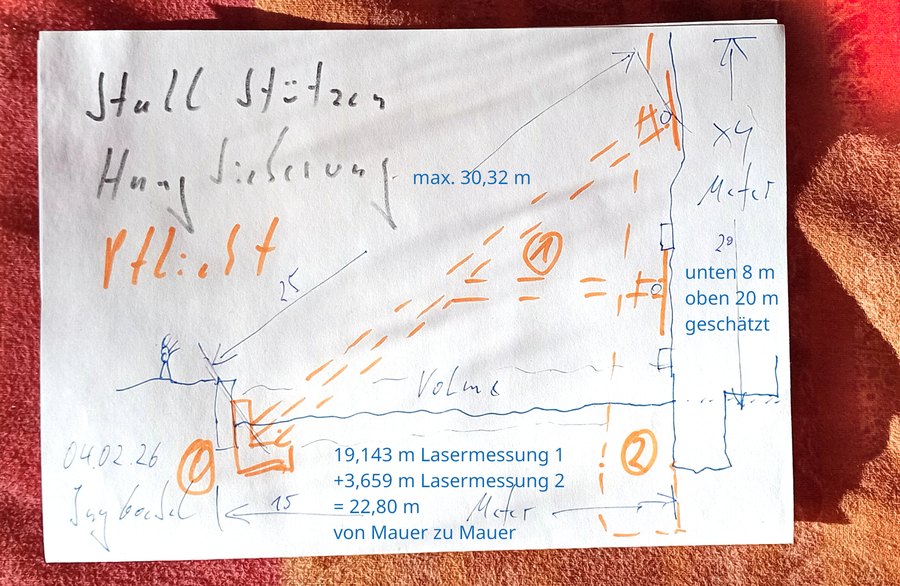 Stall Stützen
Hang Sicherung
max. 30,32 m
Pflicht
x4
Meter
1
25
20
unten 8 m
oben 20 m
geschätzt
Volme
04.02.26
1
2
19,143 m Lasermessung 1
+3,659 m Lasermessung 2
= 22,80 m
von Mauer zu Mauer
15
Meter